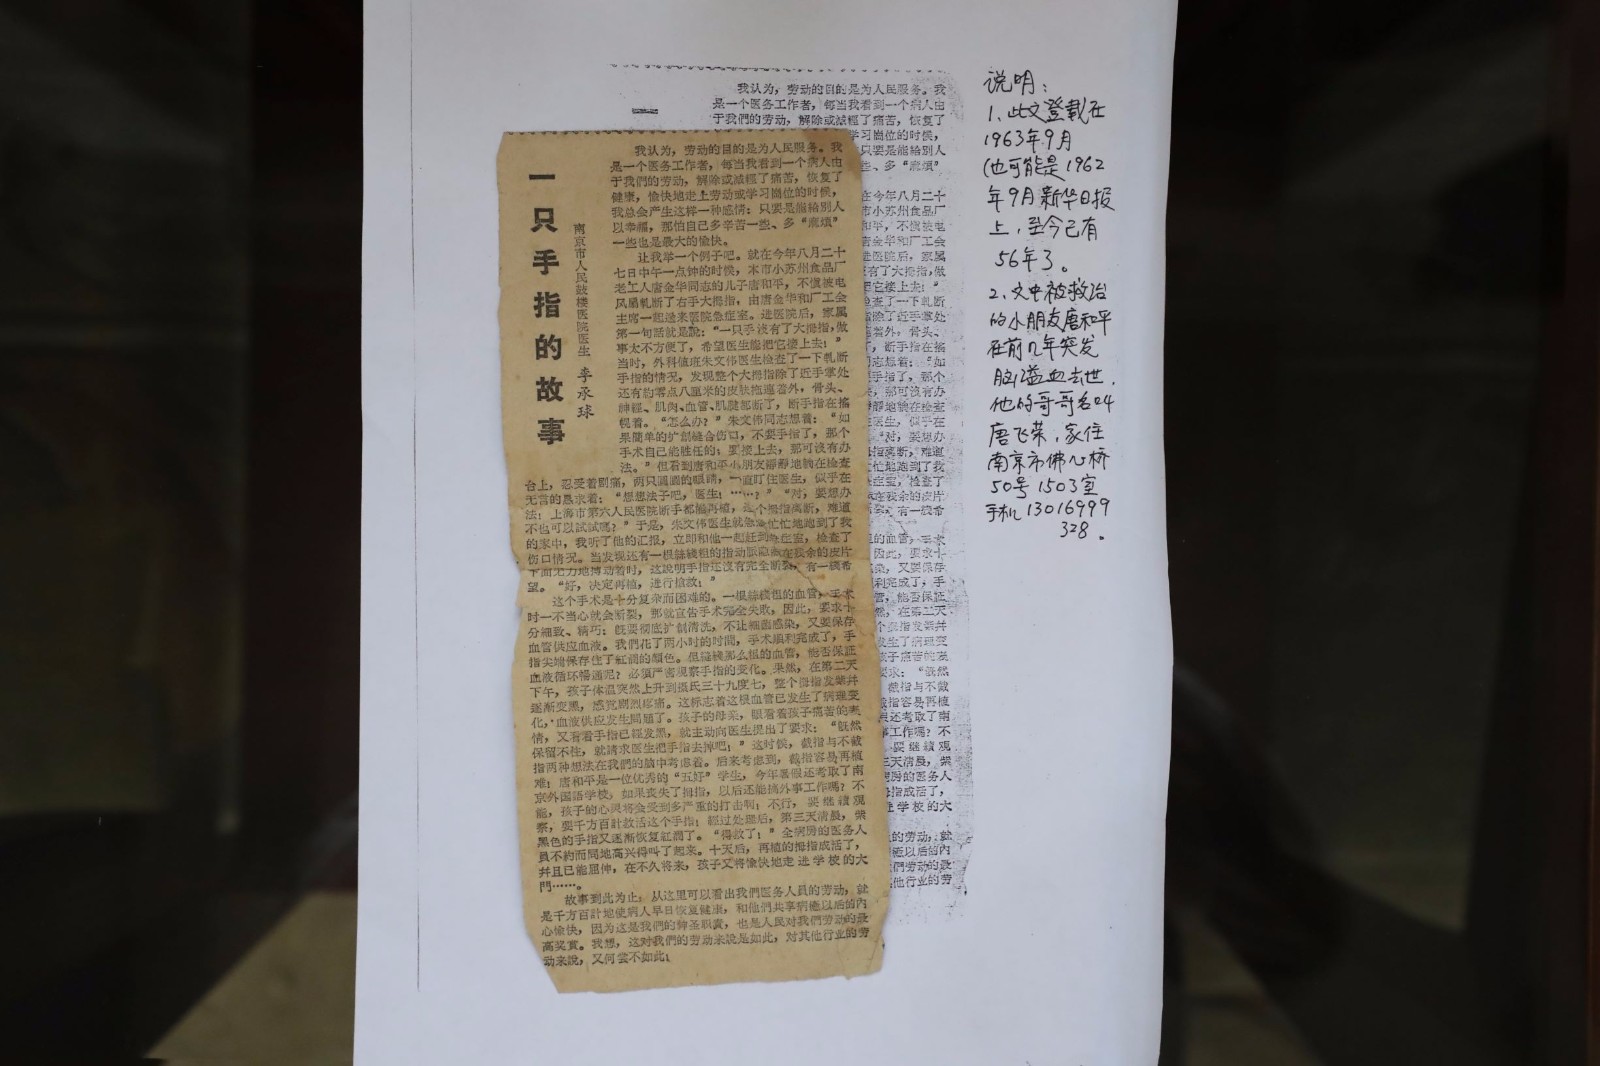 我认为，劳动的目的是为人民服务。我
是一个医务工作者，每当我看到一个病人由
于我們的劳动，解除或减輕了痛苦，恢复了
学习崗位的时候，
只要是能給別人
些、多“麻煩”
在今年八月二十
市小苏州食品厂
和平，不慎被电
唐金华和厂工会
进医院后，家属
沒有了大拇指，做
把它接上去！”
检查了一下軋断
指除了近手掌处
一只手指的故事
南京市人民鼓楼医院医生 李承球
我认为，劳动的目的是为人民服务。我
是一个医务工作者，每当我看到一个病人由
于我們的劳动，解除或减輕了痛苦，恢复了
健康，愉快地走上劳动或学习崗位的时候，
我总会产生这样一种感情：只要是能給別人
以幸福，那怕自己多辛苦一些、多“麻煩”
一些也是最大的愉快。
让我举一个例子吧。就在今年八月二十
七日中午一点钟的时候，本市小苏州食品厂
老工人唐金华同志的儿子唐和平，不慎被电
风扇軋断了右手大拇指，由唐金华和厂工会
主席一起送来医院急症室。进医院后，家属
第一句話就是說：“一只手沒有了大拇指，做
事太不方便了，希望医生能把它接上去！”
当时，外科值班朱文伟医生检查了一下軋断
手指的情况，发現整个大拇指除了近手掌处
还有約零点八厘米的皮肤拖連着外，骨头、
神經、肌肉、血管、肌腱都断了，断手指在搖
幌着。“怎么办？”朱文伟同志想着：“如
果簡单的扩創縫合伤口，不要手指了，那个
手术自己能胜任的；要接上去，那可沒有办
法。”但看到唐和平小朋友靜靜地躺在检查
台上，忍受着剧痛，两只圓圓的眼睛，一直盯住医生，似乎在
无言的恳求着：“想想法子吧，医生！……？”“对，要想办
法！上海市第六人民医院断手都能再植，这个拇指离断，难道
不也可以試試嗎？”于是，朱文伟医生就急急忙忙地跑到了我
的家中，我听了他的汇报，立即和他一起赶到急症室，检查了
伤口情况。当发現还有一根絲綫粗的指动脉隐藏在殘余的皮片
下面无力地搏动着时，这說明手指还沒有完全断裂，有一綫希
望。“好，决定再植，进行搶救！”
这个手术是十分复杂而困难的。一根絲綫粗的血管，手术
时一不当心就会断裂，那就宣告手术完全失敗，因此，要求十
分細致、精巧；既要彻底扩創清洗，不让細菌感染，又要保存
血管供应血液。我們花了两小时的时間，手术順利完成了，手
指尖端保存住了紅潤的顏色。但縫綫那么粗的血管，能否保証
血液循环暢通呢？必須严密观察手指的变化。果然，在第二天
下午，孩子体温突然上升到摄氏三十九度七，整个拇指发紫并
逐漸变黑，感觉剧烈疼痛。这标志着这根血管已发生了病理变
化，血液供应发生問題了。孩子的母亲，眼看着孩子痛苦的表
情，又看着手指已經发黑，就主动向医生提出了要求：“既然
保留不住，就請求医生把手指去掉吧！”这时候，截指与不截
指两种想法在我們的脑中考虑着。后来考虑到，截指容易再植
难；唐和平是一位优秀的“五好”学生，今年暑假还考取了南
京外国語学校，如果丧失了拇指，以后还能搞外事工作嗎？不
能，孩子的心灵将会受到多严重的打击啊！不行，要继續观
察，要千方百計救活这个手指！經过处理后，第三天清晨，紫
黑色的手指又逐漸恢复紅潤了。“得救了！”全病房的医务人
員不約而同地高兴得叫了起来。十天后，再植的拇指成活了，
并且已能屈伸，在不久将来，孩子又将愉快地走进学校的大
門……。
故事到此为止。从这里可以看出我們医务人員的劳动，就
是千方百計地使病人早日恢复健康，和他們共享病癒以后的內
心愉快，因为这是我們的神圣职責，也是人民对我們劳动的最
高奖賞。我想，这对我們的劳动来說是如此，对其他行业的劳
动来說，又何尝不如此！
说明：
1、此文登载在
1963年9月
(也可能是1962
年9月新华日报
上，至今已有
56年了。
2、文中被救治
的小朋友唐和平
在前几年突发
脑溢血去世，
他的哥哥名叫
唐飞荣，家住
南京市佛心桥
50号1503室
手机13016999
328。